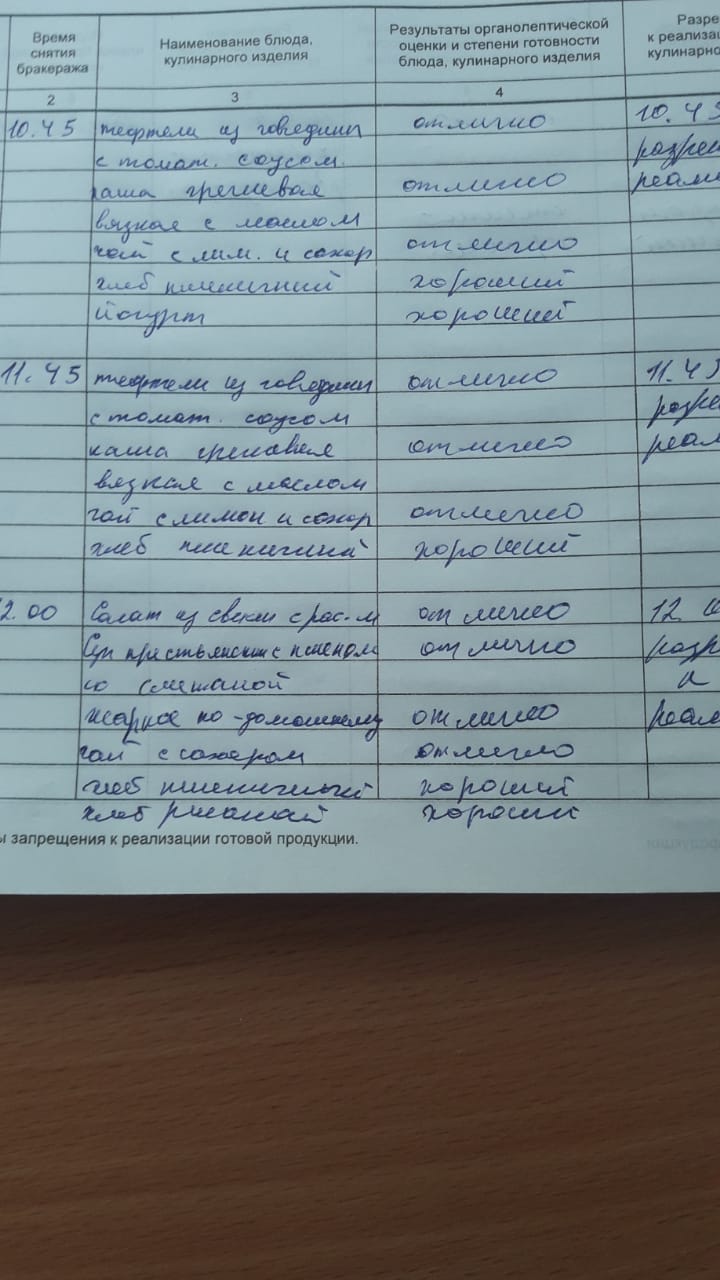 Время снятия бракеража
Наименование блюда, кулинарного изделия
Результаты органолептической оценки и степени готовности блюда, кулинарного изделия
Разре
к реализац
кулинарно
2 3 4
10.45 тефтели из говядины отлично 10.45
с томат. соусом. разреш
каша гречневая отлично реали
вязкая с маслом
чай с лим. и сахар отлично
хлеб пшеничный хороший
йогурт хороший
11.45 тефтели из говядины отлично 11.45
с томат. соусом разре
каша гречневая отлично реал
вязкая с маслом
чай с лимон и сахар отлично
хлеб пшеничный хороший
2.00 Салат из свеклы с рас. м отлично 12
Суп крестьянский с пшеном отлично разр
со сметаной к
жаркое по-домашнему отлично реал
чай с сахаром отлично
хлеб пшеничный хороший
хлеб ржаной хороший
ы запрещения к реализации готовой продукции.